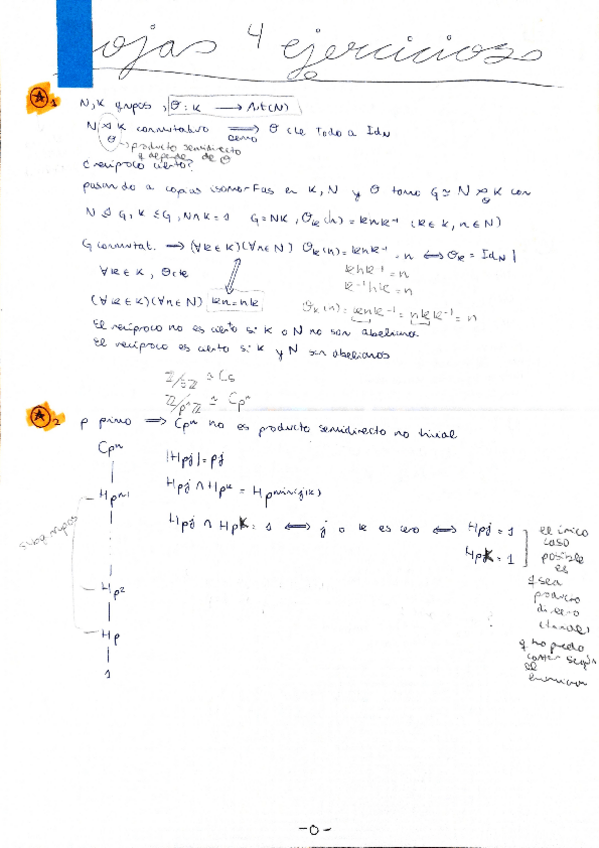 ojas 4 ejercicios
1
N, K grupos, θ: K → Aut(N)
N ⋊ K conmutativo ⟹ θ lleva todo a Id_N
θ cierto
→ producto semidirecto
q depende de θ
¿recíproco cierto?
pasando a copias isomorfas en K, N y θ tomo G ≅ N ⋊_θ K con
N ⊴ G, K ≤ G, N∩K = 1 G = NK, θ_k(n) = knk⁻¹ (k∈K, n∈N)
G conmutat. → (∀k∈K)(∀n∈N) θ_k(n) = knk⁻¹ = n ⟺ θ_k = Id_N |
knk⁻¹ = n
∀k∈K, θ cte
k⁻¹nk = n
(∀k∈K)(∀n∈N) kn = nk
θ_k(n) = knk⁻¹ = nkk⁻¹ = n
El recíproco no es cierto si K o N no son abelianos.
El recíproco es cierto si K y N son abelianos
ℤ/5ℤ ≅ C₅
ℤ/pⁿℤ ≅ Cpⁿ
2
p primo ⟹ Cpⁿ no es producto semidirecto no trivial
Cpⁿ
|Hpj| = pj
Hpⁿ⁻¹
Hpj ∩ Hpᵏ = Hp^min(j,k)
Hpj ∩ Hpk = 1 ⟺ j o k es cero ⟺ Hpj = 1
Hpk = 1
el único
caso
posible
es
q sea
producto
directo
q no puedo
contar según
el
subgrupos
Hp²
Hp
1
-0-